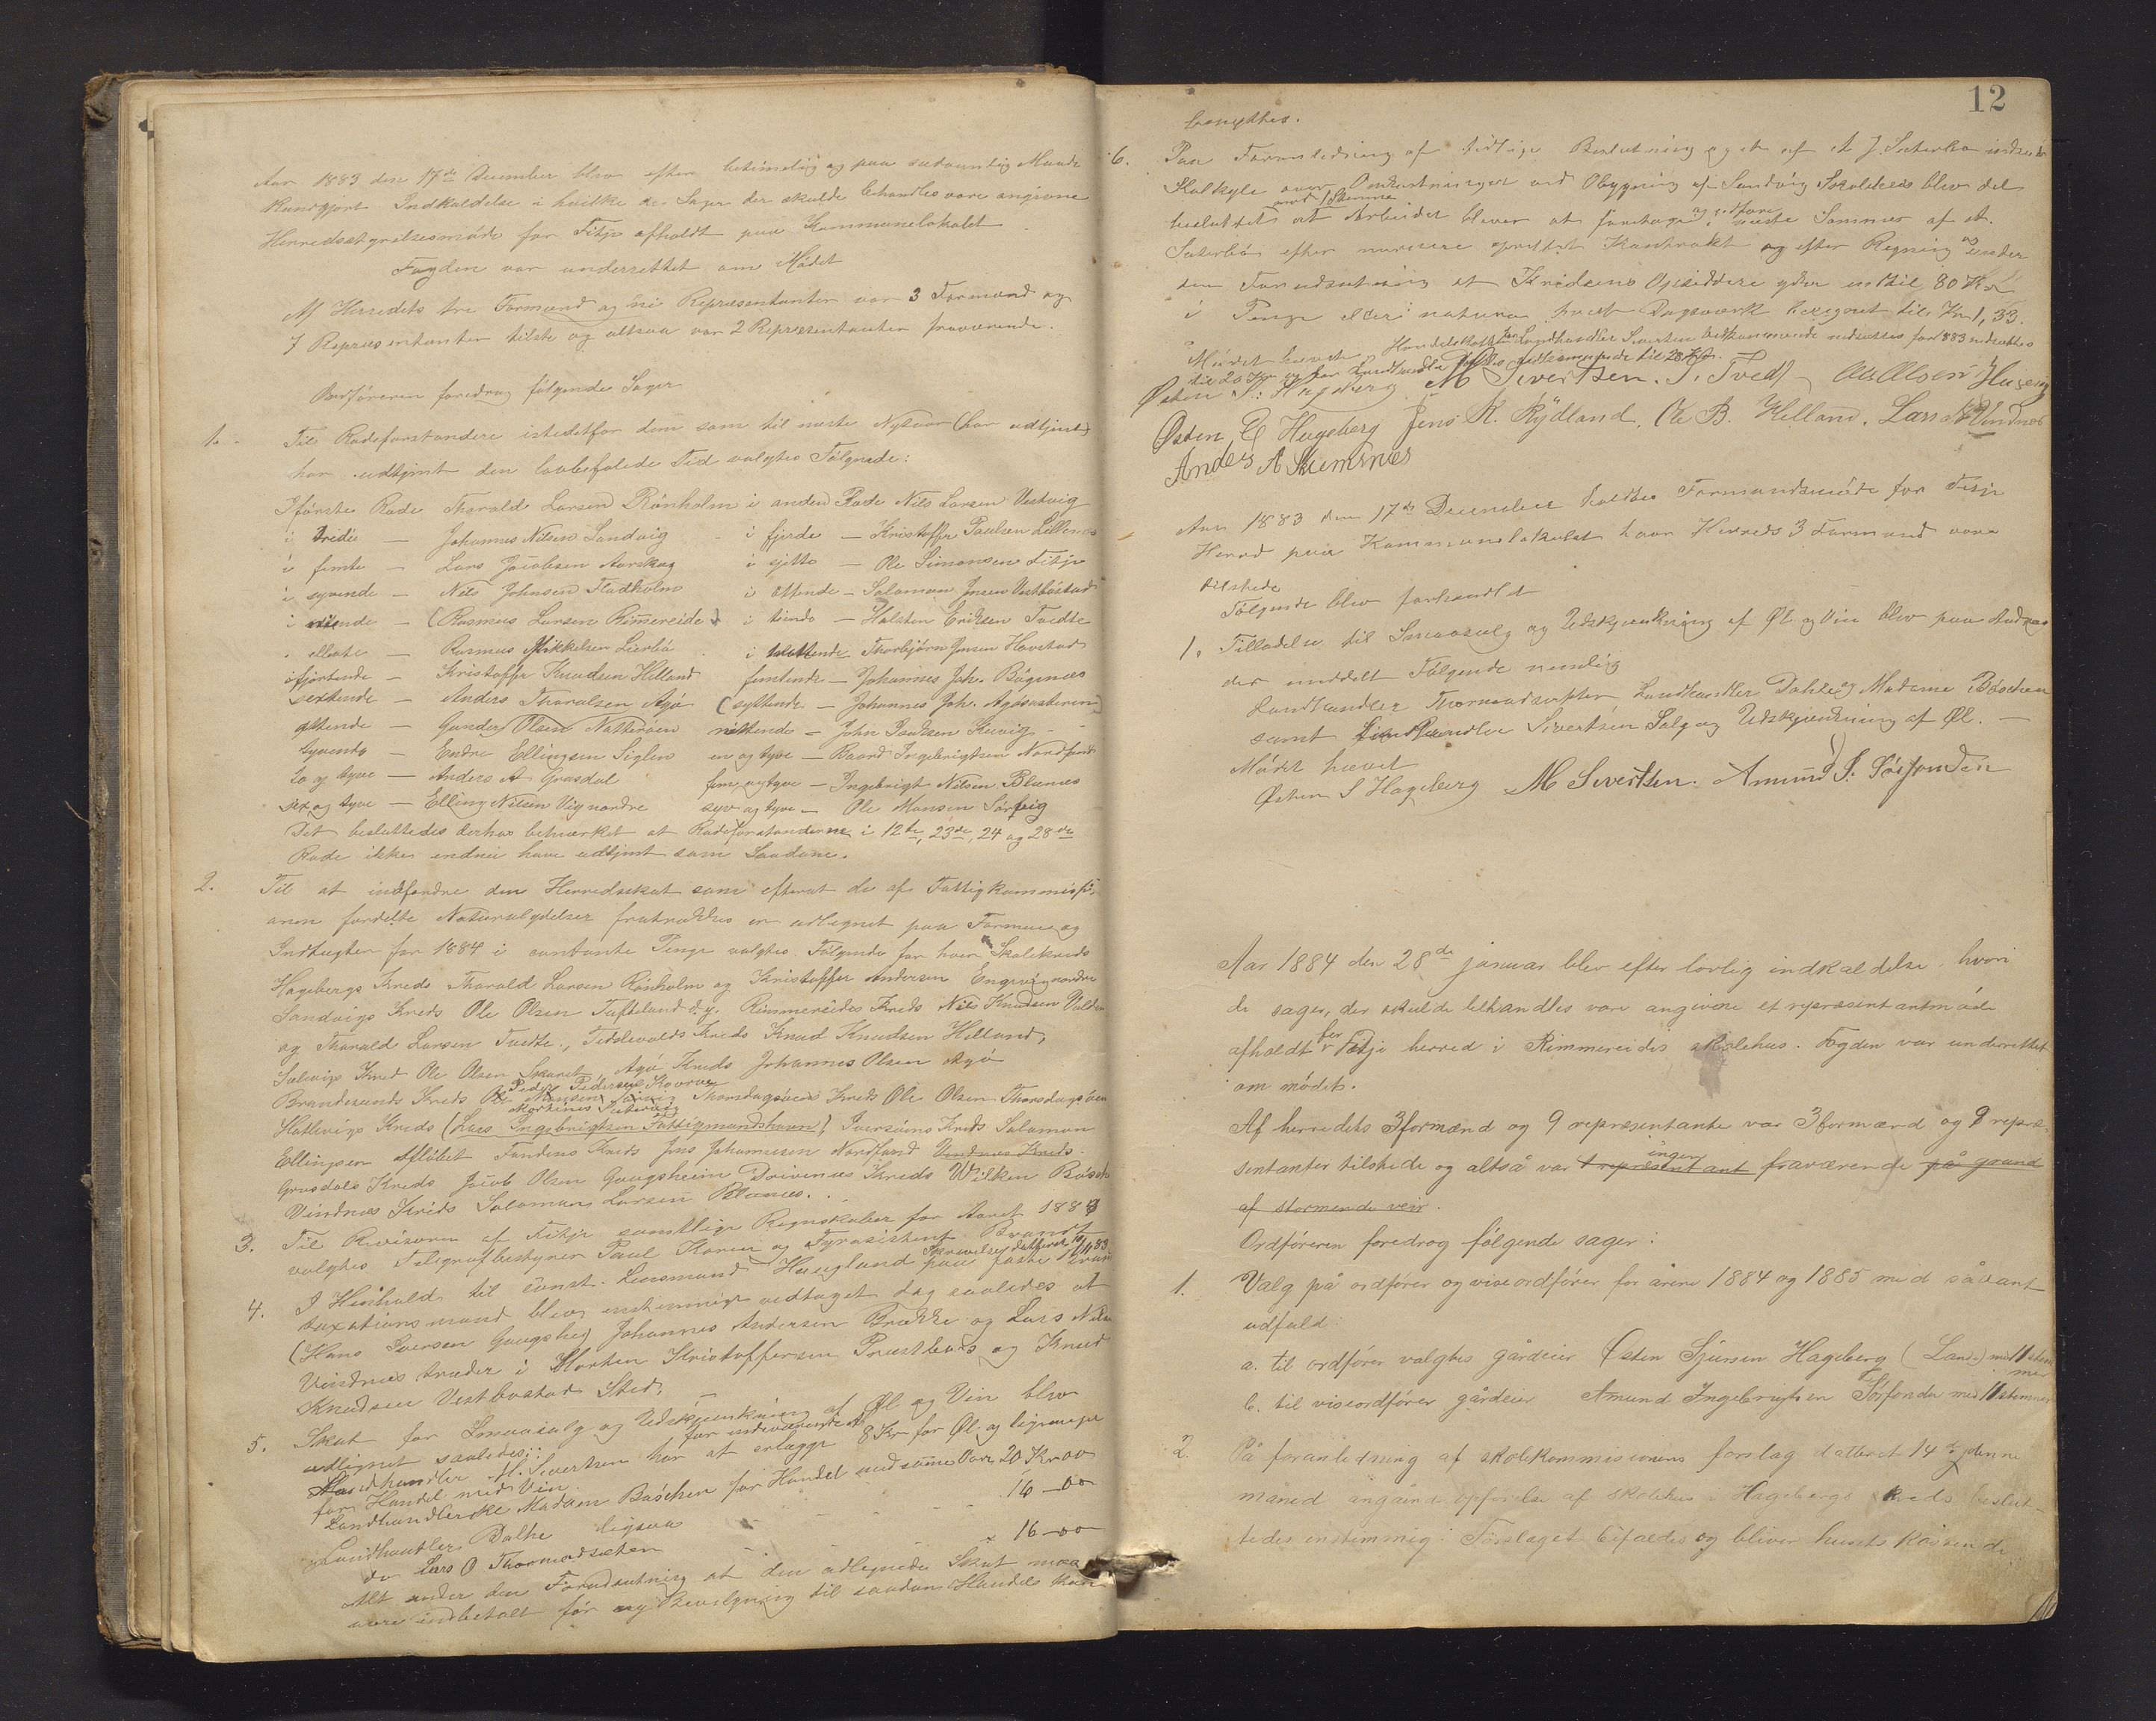 Aar 1883 den 17de December blev efter betimelig og paa sædvanlig Maade
Kundgjort Indkaldelse i hvilke de Sager der skulde behandles vare angivne
Herredsstyrelsesmøde for Fitje afholdt paa Kommunelokalet
Fogden var underrettet om Mødet
Af Herredets tre Formænd og ni Repræsentanter var 3 Formænd og
7 Repræsentanter tilstede og altsaa var 2 Repræsentanter fraværende.
Ordføreren foredrog følgende Sager
1. Til Rodeforstandere istedetfor dem som til næste Nytaar (har udtjent)
har udtjent den lovbefalede Tid valgtes Følgende:
I første Rode Thorald Larsen Rönholm i anden Rode Nils Larsen Vestvig
i tredie — Johannes Nilsen Sandvig - i fjerde — Kristoffer Paulsen Lillenes
i femte — Lars Jacobsen Aarskog i sjette — Ole Simonsen Fitje
i syvende — Nils Johnsen Fladholm i ottende — Salomon Jensen Vestbøstad
i niende — (Rasmus Larsen Rimereide) i tiende — Halsten Eriksen Tvedte
i ellevte — Rasmus Mikkelsen Lierbø i trettende Thorbjörn Jensen Havstad
i fjortende — Kristoffer Knudsen Helland femtende — Johannes Joh. Bågenes
sextende — Anders Tharalsen Agø (syttende — Johannes Joh. Agøsasteren)
attende — Gunder Olsen Nattirøen nittende — John Isaksen Kuvig -
tyvende — Endre Ellingsen Siglen en og tyve — Baard Ingebrigtsen Nordfond
to og tyve — Anders A Grasdal fem og tyve — Ingebrigt Nilsen Blænes
sex og tyve — Elling Nilsen Vig nordre syv og tyve — Ole Monsen Sørfvig
Det besluttedes derhos bemærket at Rodeforstanderne i 12te, 23de, 24 og 28de
Rode ikke endnu have udtjent som Saadane.
2. Til at indfordre den Herredsskat som efterat de af Fattigkommissi-
onen fordelte Naturalydelser fratrækkes er udlignet paa Formue og
Indtægter for 1884 i contante Penge valgtes Følgende for hver Skolekreds
Hagebergs Kreds Thorald Larsen Rönholm og Kristoffer Andersen Engevig nordre
Sandvigs Kreds Ole Olsen Tufteland d.y. Rimmereides Kreds Nils Knudsen
og Tharald Larsen Tvedte., Teddevolds Kreds Knud Knudsen Helland,
Selevigs Kreds Ole Olsen Skaret, Agø Kreds Johannes Olsen Agø
Peder Pedersen Kovrevig
Brandesunds Kreds Ole Monsen Sørvig Thorsdagsøens Kreds Ole Olsen Thorsdagsøen
Mortinus Sætervig
Hatlevigs Kreds (Lars Ingebrigtsen Fattigmandshavn), Iversøens Kreds Salamon
Ellingsen Afløbet Fondens Kreds Jens Johannesen Nordfond Vindnes Kreds.
Grasdals Kreds Jacob Olsen Gaugsheim Drivenes Kreds Wilken
Vindnes Kreds Salamon Larsen Blænes.
3. Til Revisorer af Fitje samtlige Regnskaber for Aaret 1883
valgtes Telegrafbestyrer Paul Koren og Fyrasistent Brandt
4. I Henhold til const. Lensmand Haugland Skrivelse datteret paa faste
taxationsmænd blev enstemmigt vedtaget dog saaledes at
(Hans Iversen Gaugshei) Johannes Andersen Brække og Lars Nilsen
Vindnes træder i Morten Kristoffersen Prestbøs og Knud
Knudsen Vestbøstad Sted.
5. Skat for Smaasalg og Udskjænkning af Øl og Vin blev
udlignet saaledes: for indeværende Aar
Landhandler M. Sivertsen har at erlægge 8 Kr for Øl. og ligesaa
for Handel med Vin.
Landhandlerske Madam Böschen for Handel med samme Vare 20 Kr 00
Landhandler Dalhe ligesaa 16 — 00
do Lars O Thormodsæter 16 — 00
Alt under den Forudsætning at den udlignede Skat maa
være indbetalt før ny Bevilgning til saadan Handel kan
12
benyttes.
6. Paa Foranledning af tidlige Beslutning og et af A J. Sæterbø indsendt
Kalkyle over Omkostninger ved Obygning af Sandvig Skolehus blev det
mod 1 Stemme
besluttet at Arbeidet bliver at foretage og udføre næste Sommer af A.
Sæterbø efter nærmere oprettet Kontrakt og efter Regning og under
den Forudsætning at Kredsens Opsiddere yder indtil 80 Kr
i Penge eller i natura hvert Dagsværk beregnet til Kr 1,33.
Mødet hævet. Handelsskatten for Landhandler Sivertsen vedkommende nedsættes for 1883 nedsættes
til 20 Kr og for Landhandler Dalhes vedkommende til 20 Kr.
Østen S. Hageberg M Sivertsen. T. Tvedt Ole Olsen Hageberg
Østen E Hageberg Jens K. Rydland. Ole B. Helland. Lars N Vindnes
Anders A Skumsnes
Aar 1883 den 17de December holdtes Formandsmøde for Fitje
Herred paa Kommunelokalet hvor Herreds 3 Formænd vare
tilstede
Følgende blev forhandlet
1. Tilladelse til Smaasalg og Udskjænkning af Øl og Vin blev paa Andrag-
der meddelt Følgende nemlig
Landhandler Thormodsæter Landhandler Dahle og Madame Böschen
samt Landhandler Sivertsen Salg og Udskjænkning af Øl. —
Mødet hævet
Østen S Hageberg M Sivertsen. Amund I. Sörfonden
Aar 1884 den 28de januar blev efter lovlig indkaldelse, hvori
de sager, der skulde behandles vare angivne et repræsentantmøde
afholdt for Fitje herred i Rimmereides skolehus. Fogden var underrettet
om mødet.
Af herredets 3 formænd og 9 repræsentante var 3 formænd og 9 repræ-
ingen
sentanter tilstede og altså var 1 repræsentant fraværende på grund
af stormende veir.
Ordføreren foredrog følgende sager:
1. Valg på ordfører og viseordfører for årene 1884 og 1885 med sådant
udfald:
a. til ordfører valgtes gårdeier Østen Sjursen Hageberg (Land-) med 11 stem
mer
b. til viseordfører gårdeier Amund Ingebrigtsen Sørfonden med 11 stemmer
2. På foranledning af skolekommisionens forslag datteret 14de denne
måned angående opførelse af skolehus i Hagebergs kreds beslut-
tedes enstemmig: Forslaget bifaldes og bliver husets kåssende